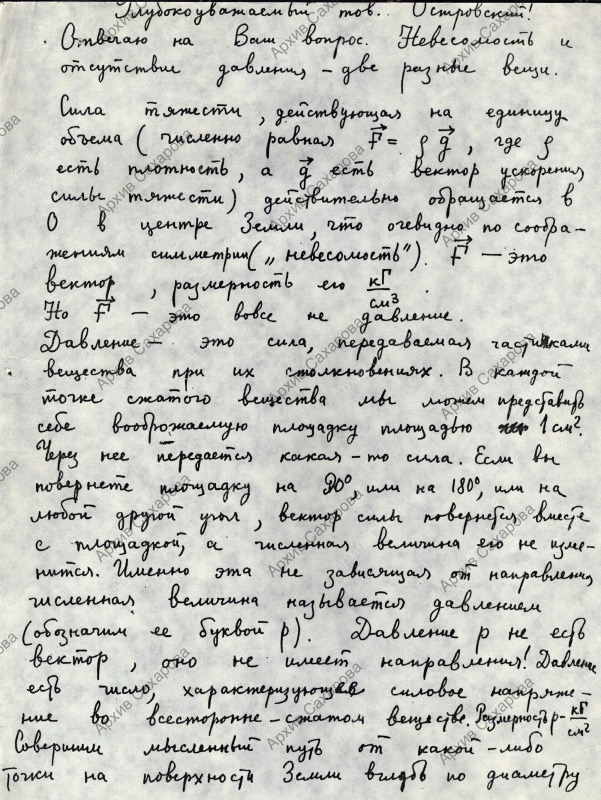 Глубокоуважаемый тов. Островский!
Отвечаю на Ваш вопрос. Невесомость и
отсутствие давления – две разные вещи.
Сила тяжести, действующая на единицу
объема (численно равная F⃗ = ρ g⃗, где ρ
есть плотность, а g⃗ есть вектор ускорения
силы тяжести) действительно обращается в
0 в центре Земли, что очевидно по сообра-
жениям симметрии („невесомость"). F⃗ – это
вектор, размерность его кГ/см³.
Но F⃗ – это вовсе не давление.
Давление – это сила, передаваемая частиками
вещества при их столкновениях. В каждой
точке сжатого вещества мы можем представить
себе воображаемую площадку площадью 1 см².
Через нее передается какая-то сила. Если вы
повернете площадку на 90°, или на 180°, или на
любой другой угол, вектор силы повернется вместе
с площадкой, а численная величина его не изме-
нится. Именно эта не зависящая от направления
численная величина называется давлением
(обозначим ее буквой p). Давление p не есть
вектор, оно не имеет направления! Давление
есть число, характеризующее силовое напряже-
ние во всесторонне-сжатом веществе. Размерность p – кГ/см²
Совершим мысленный путь от какой-либо
точки на поверхности Земли вглубь по диаметру
Архив Сахарова